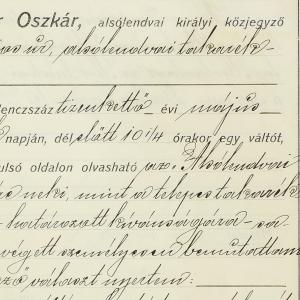 r Oszkár, alsólendvai királyi közjegyző
úr, alsólendvai takarék-
lenczszáz tizenkettő évi május
napján, dél előtt 10 1/4 órakor egy váltót,
ulsó oldalon olvasható az Alsólendvai
neki, mint a telepes takarék
határozott kívánságára
végett személyesen bemutattam
választ nyertem: